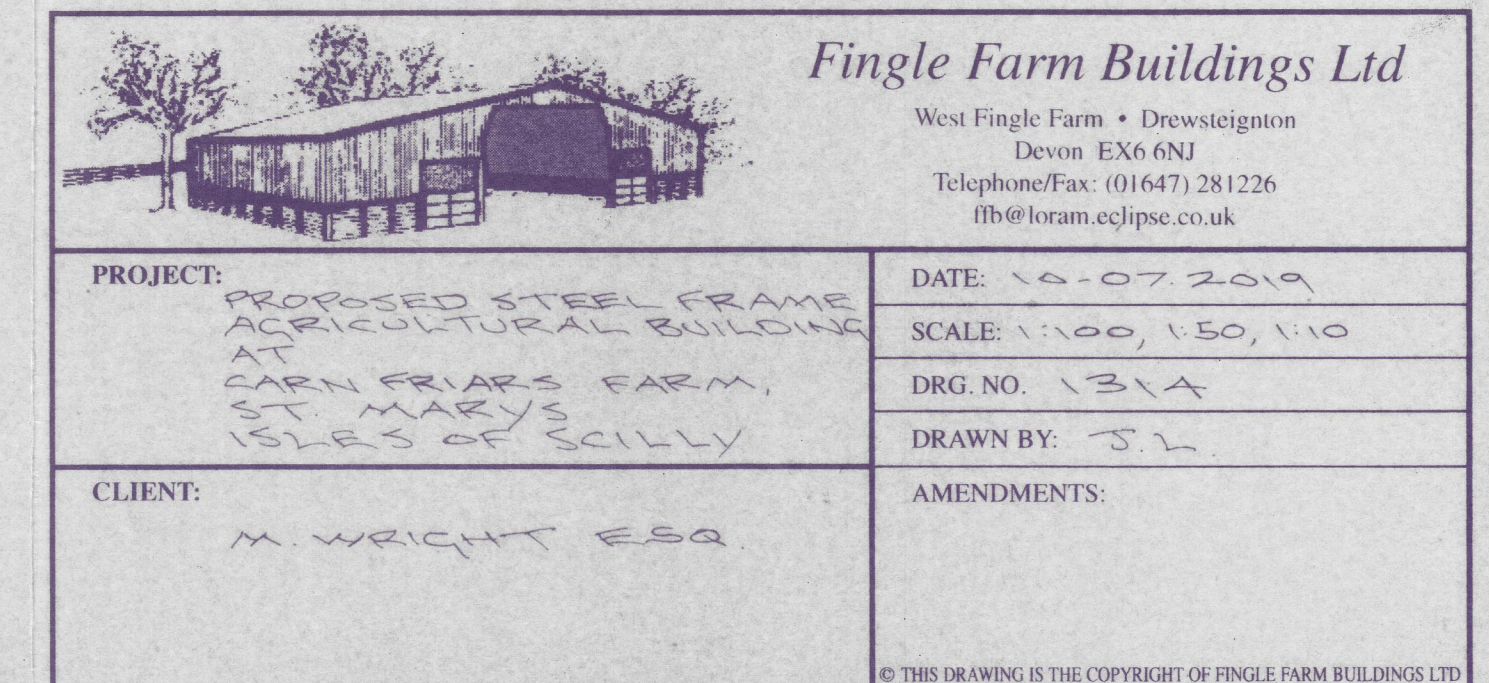 Fingle Farm Buildings Ltd
West Fingle Farm • Drewsteignton
Devon EX6 6NJ
Telephone/Fax: (01647) 281226
ffb@loram.eclipse.co.uk
PROJECT:
PROPOSED STEEL FRAME
AGRICULTURAL BUILDING
AT
CARN FRIARS FARM,
ST. MARYS
ISLES OF SCILLY
CLIENT:
M. WRIGHT ESQ.
DATE: 10-07.2019
SCALE: 1:100, 1:50, 1:10
DRG. NO. 1314
DRAWN BY: J.L
AMENDMENTS:
© THIS DRAWING IS THE COPYRIGHT OF FINGLE FARM BUILDINGS LTD